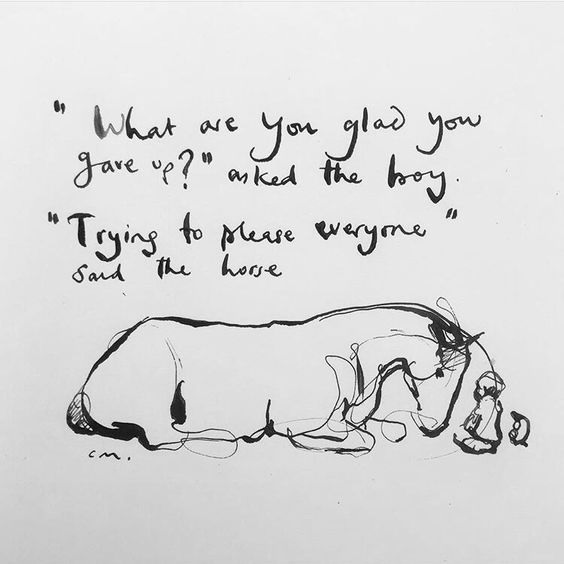 " What are you glad you
gave up?" asked the boy.
"Trying to please everyone"
said the horse
CM.